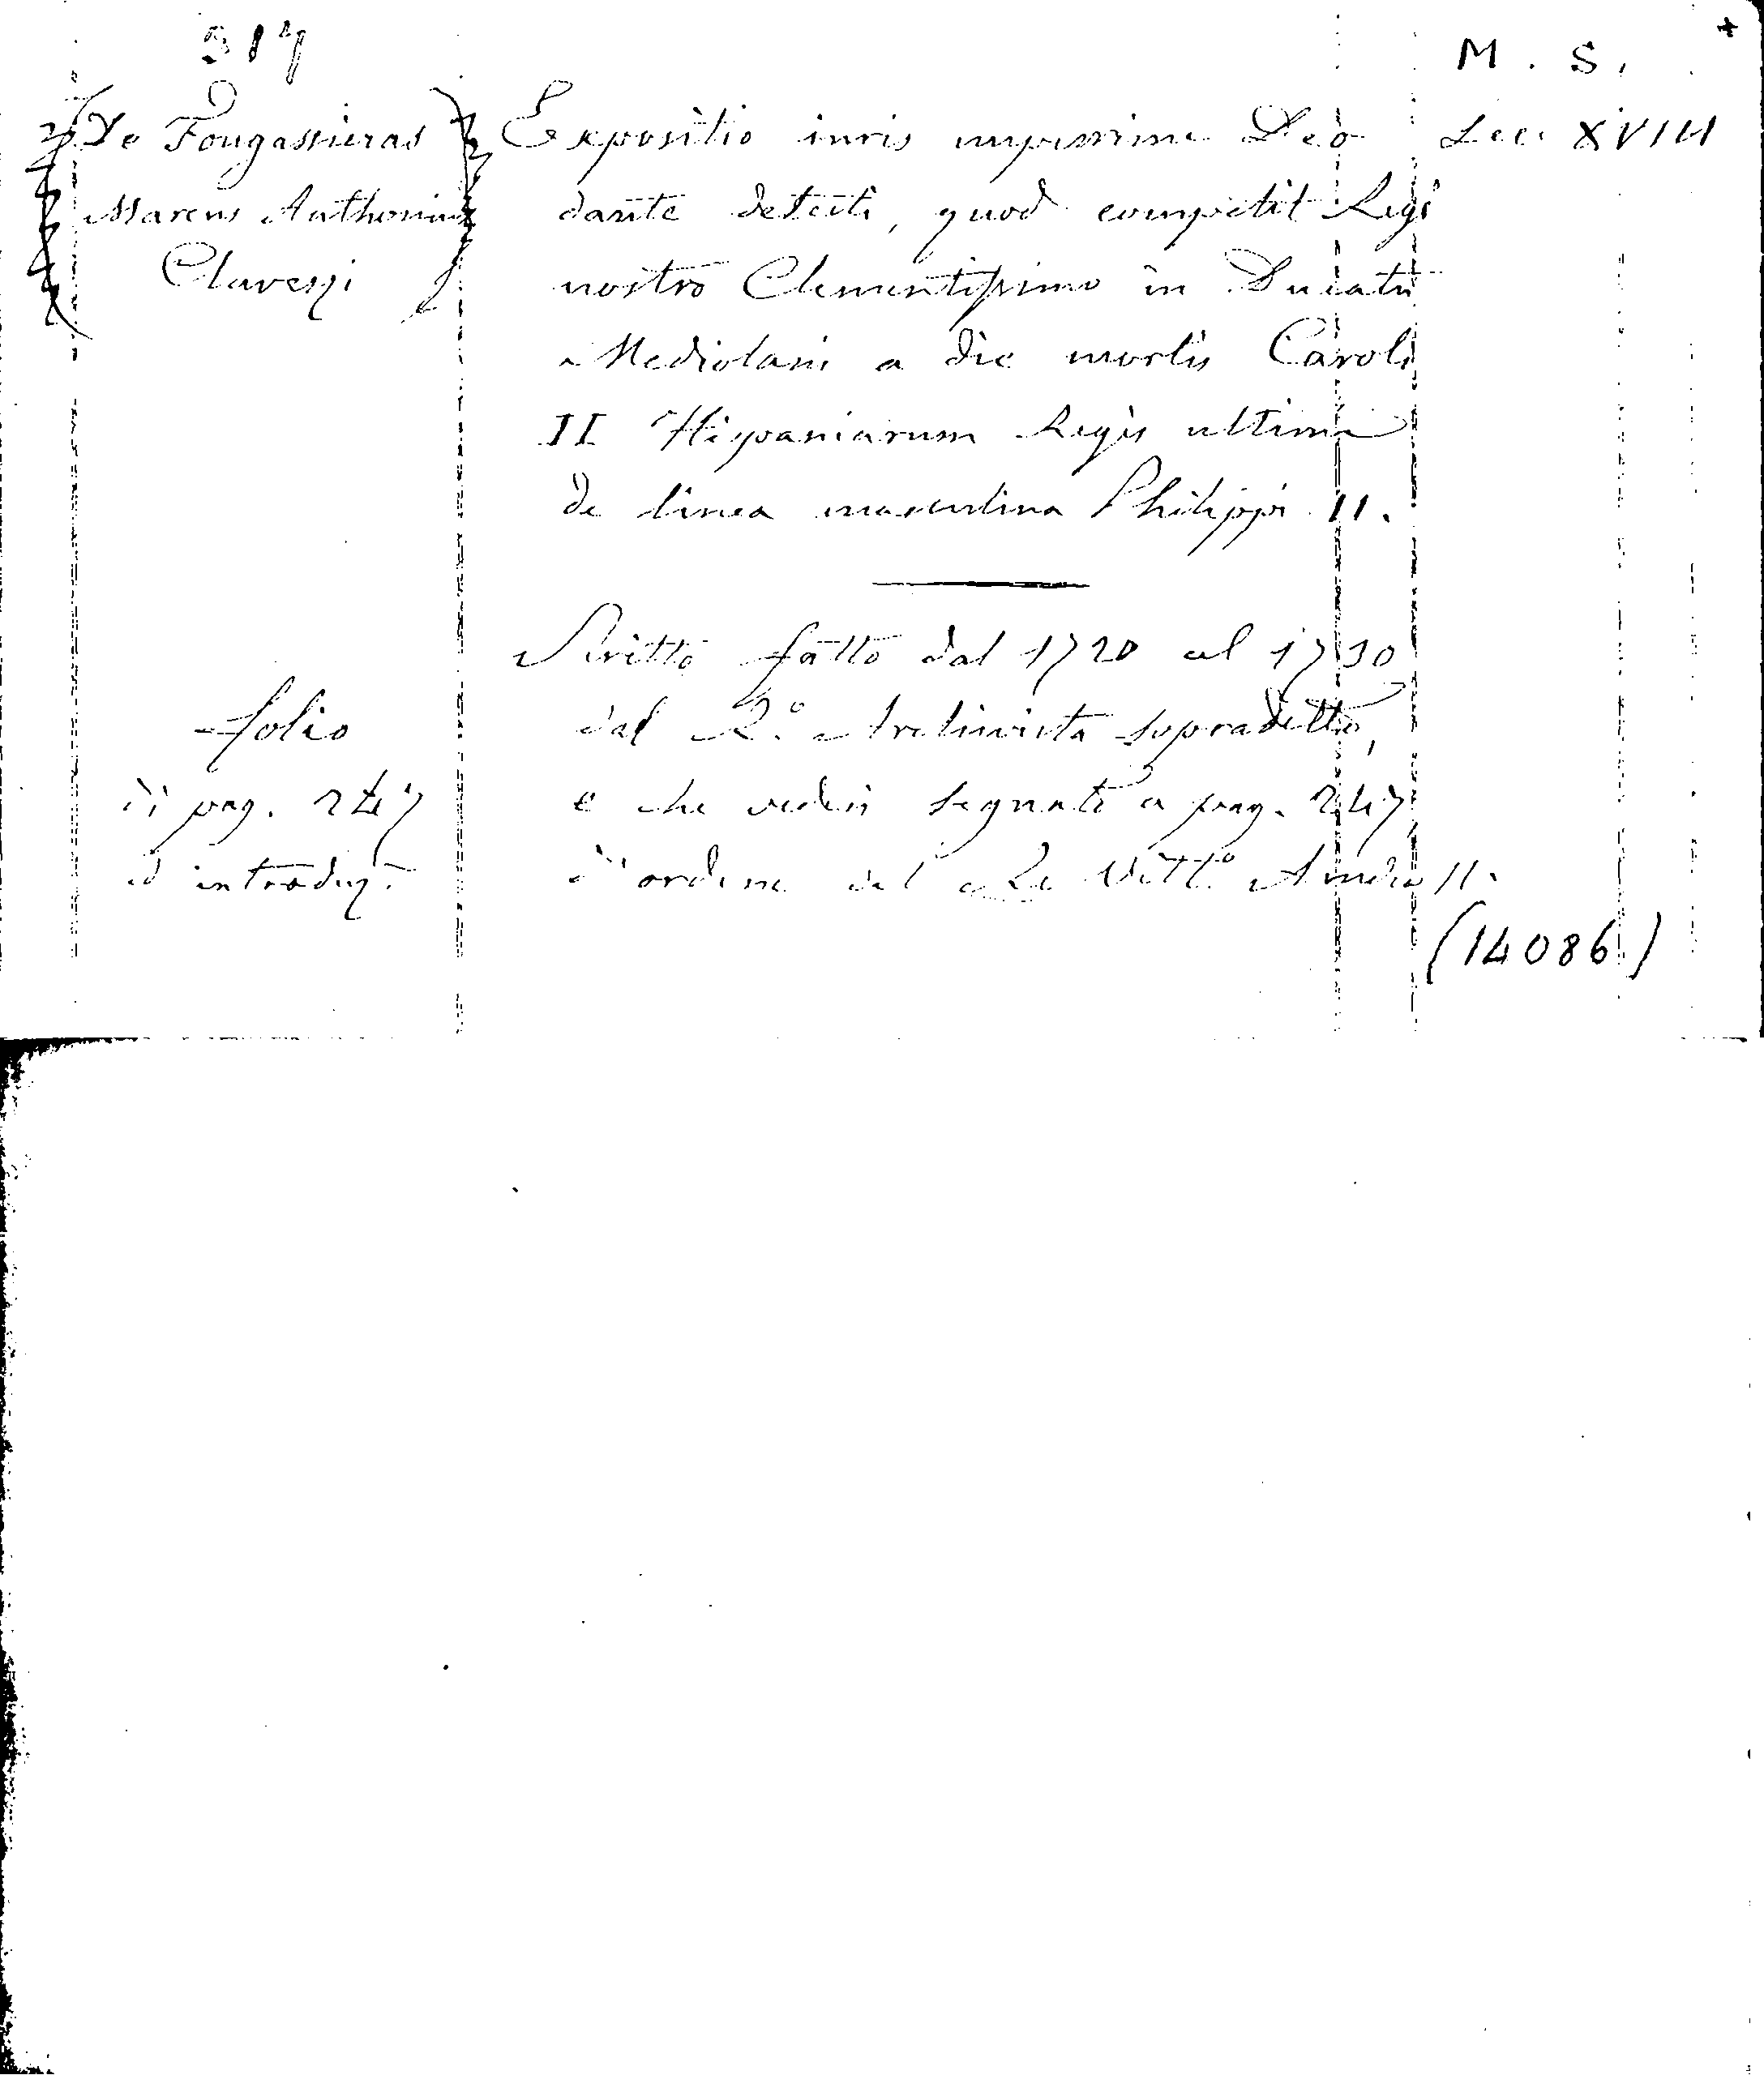 317
M. S.
De Fougassieras
Marcus Anthonius
Clavessi
Expositio iuris nuperrime Deo
dante detecti, quod competit Regi
nostro Clementissimo in Ducatu
Mediolani a die mortis Caroli
II Hispaniarum Regis ultimi
de linea masculina Philippi II.
Sec. XVIII
Scritto fatto dal 1720 al 1730
dal R.º Archivista sopradetto,
e che vedesi segnato a pag. 247
d'ordine del Re Vitt.º Amedeo II.
folio
di pag. 247
ed introduz.
(14086)